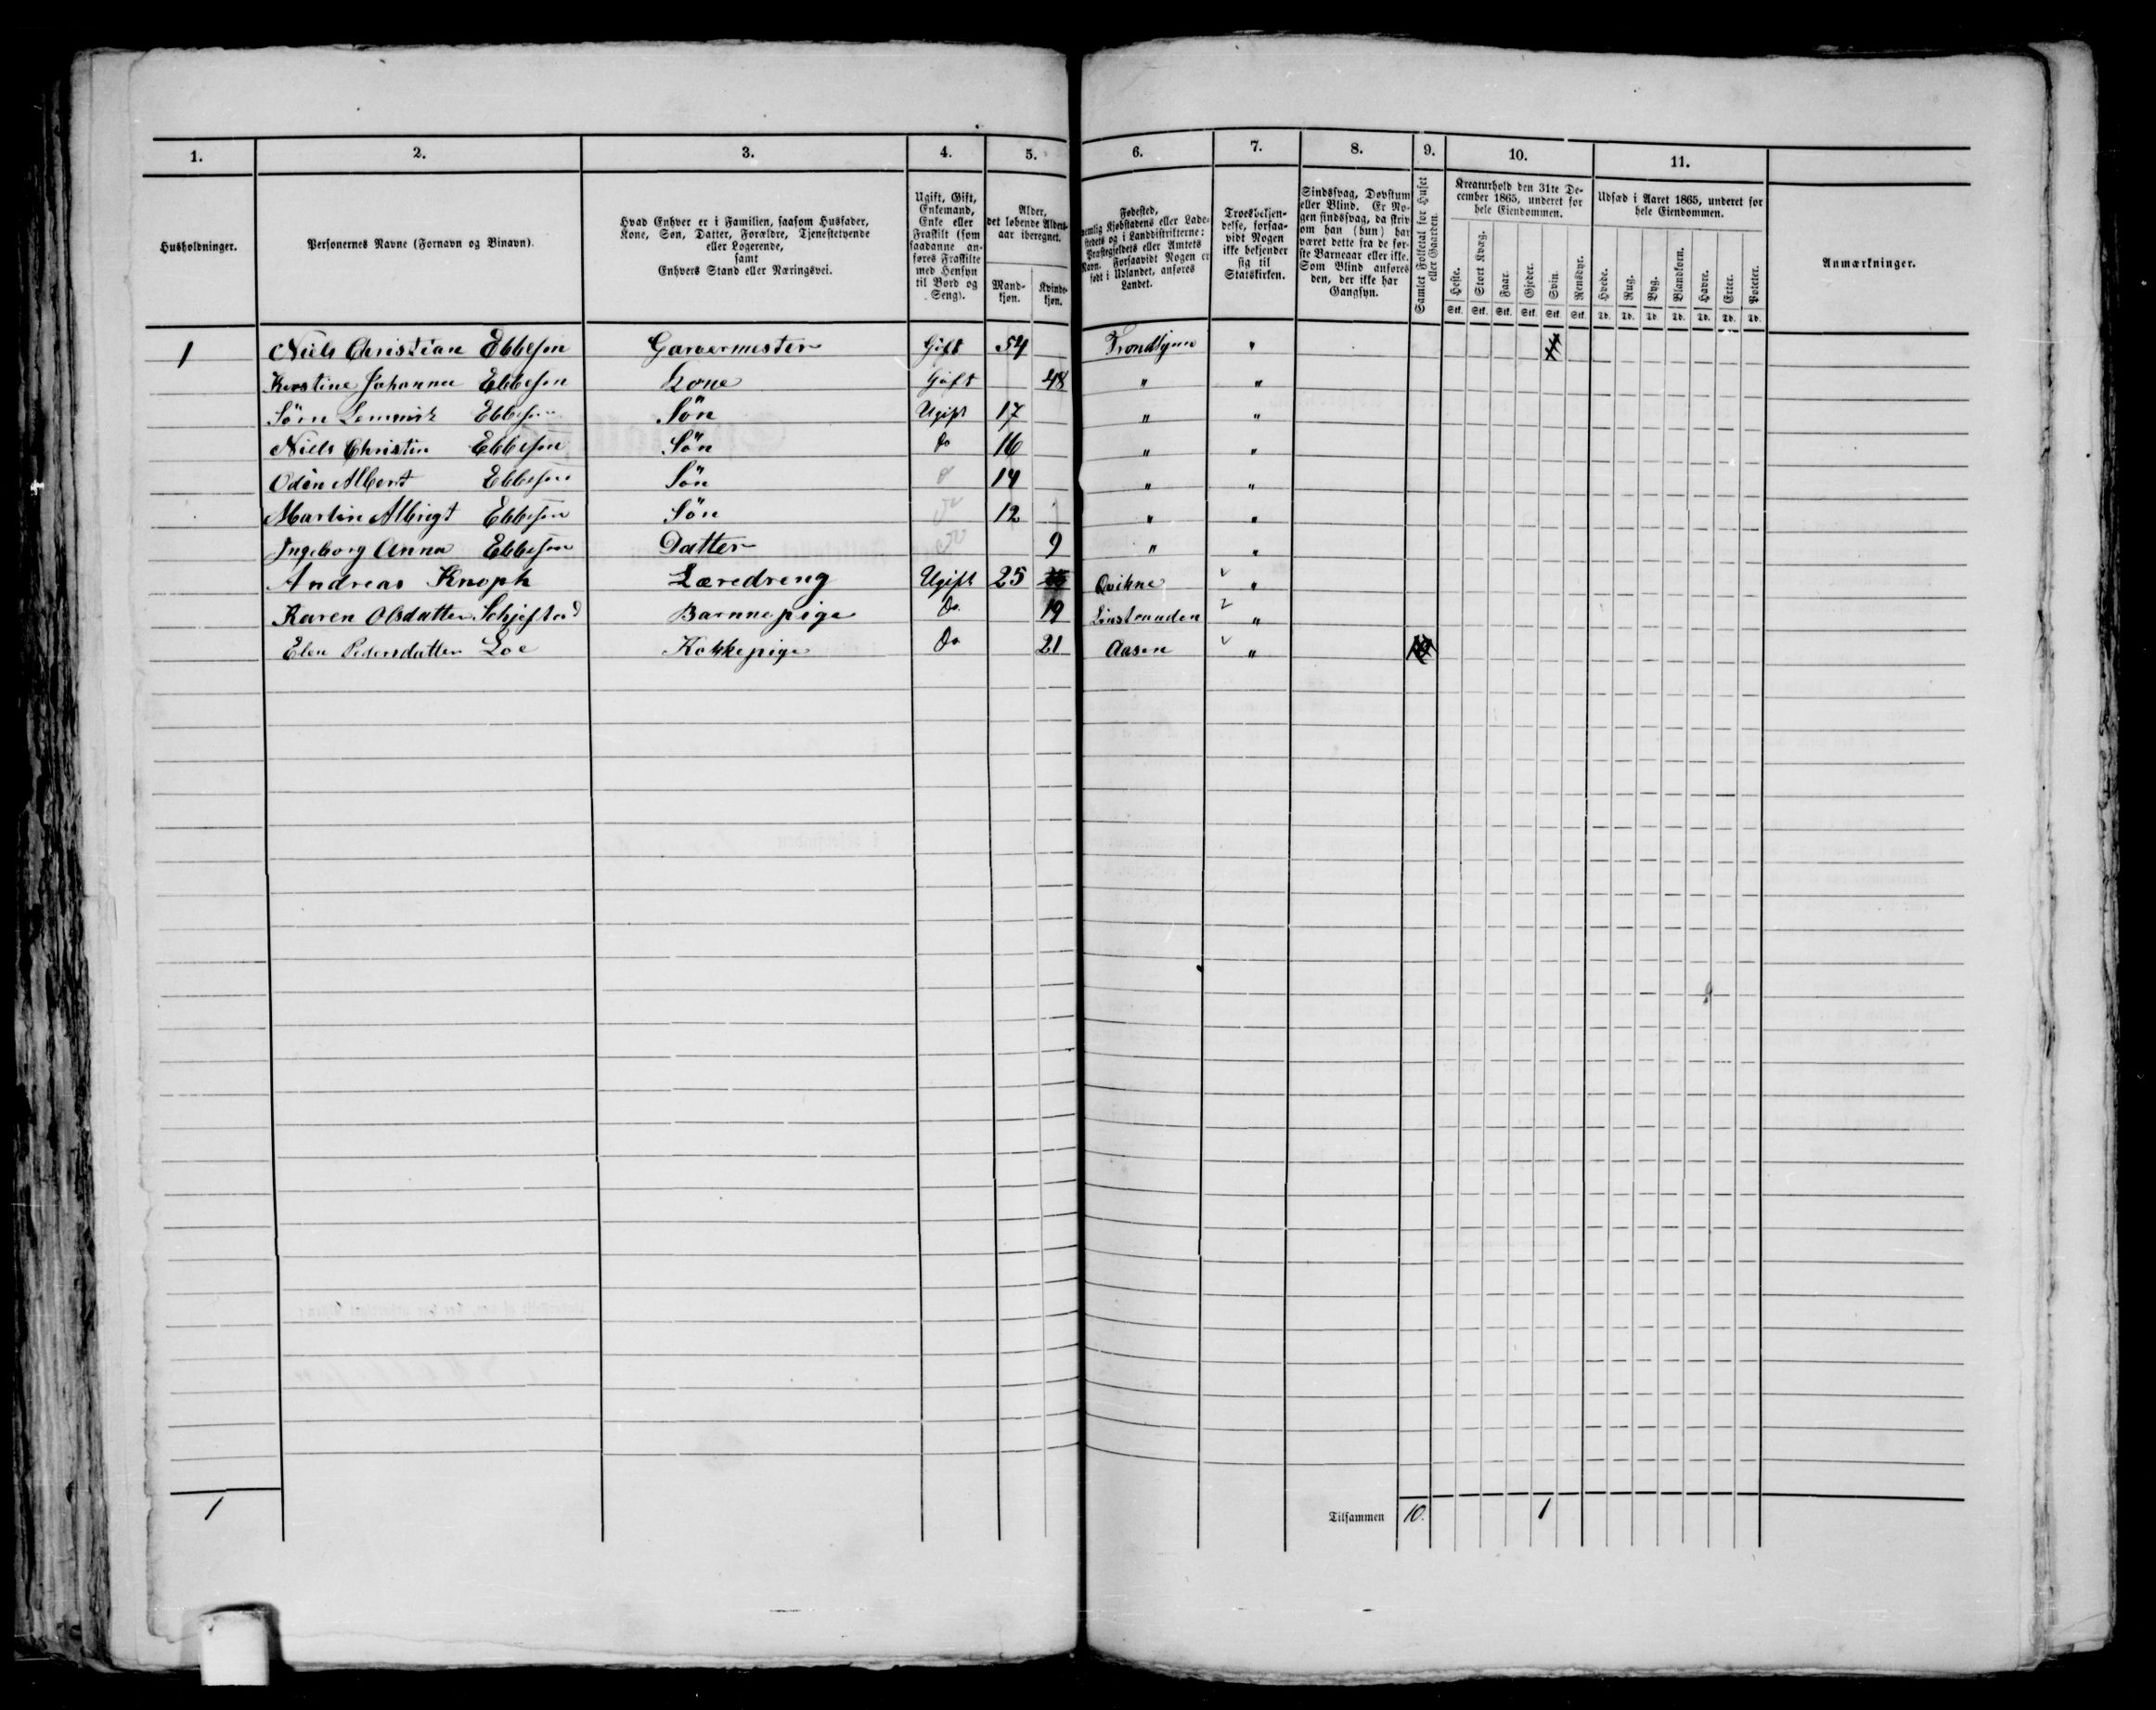 1. 2. 3. 4. 5. 6. 7. 8. 9. 10. 11.
Husholdninger.
Personernes Navne (Fornavn og Binavn).
Hvad Enhver er i Familien, saasom Husfader,
Kone, Søn, Datter, Forældre, Tjenestetyende
eller Logerende,
samt
Enhvers Stand eller Næringsvei.
Ugift, Gift,
Enkemand,
Enke eller
Fraskilt (som
saadanne an-
føres Fraskilte
med Hensyn
til Bord og
Seng).
Alder,
det løbende Alders-
aar iberegnet.
Mand-
kjøn.
Kvinde-
kjøn.
Fødested,
nemlig Kjøbstadens eller Lade-
stedets og i Landdistrikterne:
Præstegjeldets eller Amtets
Navn. Forsaavidt Nogen er
født i Udlandet, anføres
Landet.
Troesbekjen-
delse, forsaa-
vidt Nogen
ikke bekjender
sig til
Statskirken.
Sindssvag, Døvstum
eller Blind. Er No-
gen sindssvag, da skriv
om han (hun) har
været dette fra de før-
ste Barneaar eller ikke.
Som Blind anføres
den, der ikke har
Gangsyn.
Samlet Folketal for Huset
eller Gaarden.
Kreaturhold den 31te De-
cember 1865, underet for
hele Eiendommen.
Heste. Stort Kvæg. Faar. Gjeder. Svin. Rensdyr.
Stk. Stk. Stk. Stk. Stk. Stk.
Udsæd i Aaret 1865, underet for
hele Eiendommen.
Hvede. Rug. Byg. Blandkorn. Havre. Erter. Poteter.
Td. Td. Td. Td. Td. Td. Td.
Anmærkninger.
1 Niels Christian Ebbesen Garvermester Gift 54 Trondhjem "
Kerstine Johanna Ebbesen Kone Gift 48 " "
Søm Lemmik Ebbesen Søn Ugift 17 " "
Niels Christin Ebbesen Søn Do 16 " "
Odin Albert Ebbesen Søn 14 " "
Martin Albrigt Ebbesen Søn Do 12 " "
Ingeborg Anna Ebbesen Datter Do 9 " "
Andreas Knoph Læredreng Ugift 25 Qvikne "
Karen Olsdatter Schjefstad Barnnepige Do 19 Linstranden "
Elen Pedersdatter Loe Kokkepige Do 21 Aasen "
1 Tilsammen 10. 1